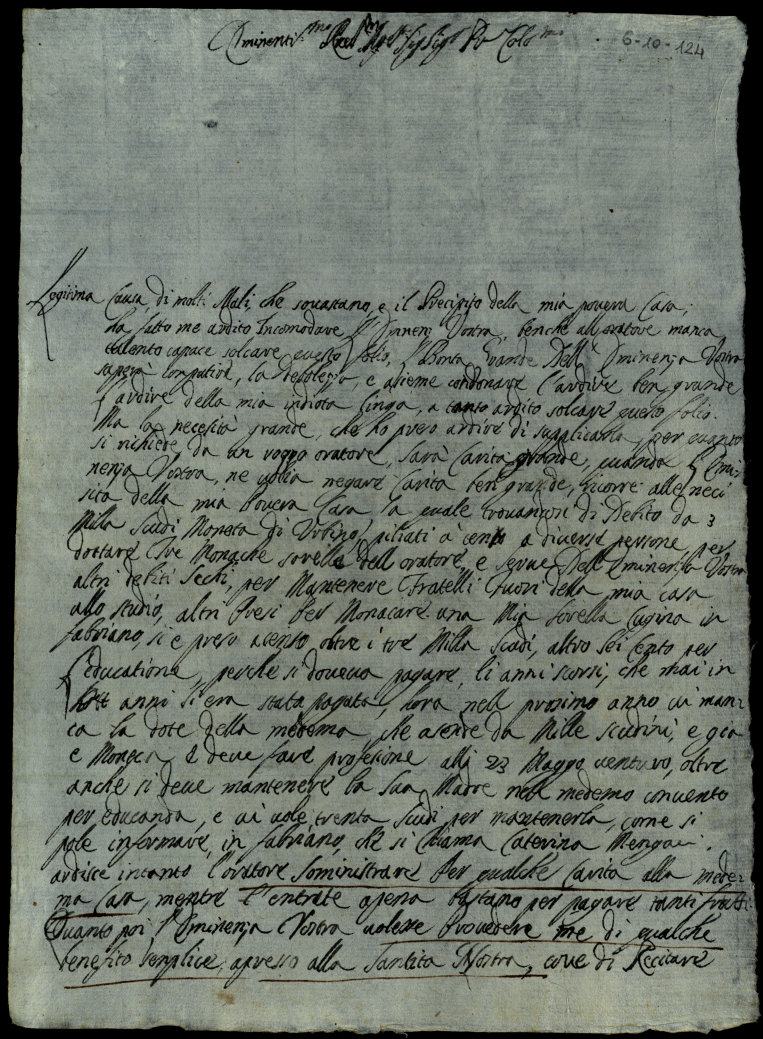 Eminenti.mo Rev.mo Sig. Sig. Pro Colo.mo
6-10-124
Legitima Causa, di molti Mali, che sovastano, e il Precipito della mia povera Casa,
ha fatto me ardito Incomodare l'Eminenza Vostra, benche all'oratore manca
talento capace solcare questo folio, l'Bonta Grande Dell'Eminenza Vostra
sapera compatire, la e asieme condonare l'ardire ben grande
l'ardire della mia indiota linga, a tanto ardito solcare questo folio.
Ma la necesità grande, che ho preso ardire di supplicarla, per quanto
si richiede da un oratore, sarà Carita grande, quando l'Emi
nenza Vostra, ne volia negare Carita ben grande, alle neci
sita della mia Povera Casa la quale trovandosi di Debito da 3
Milla Scudi Moneta di Urbino piliati à cento a diverse persone per
dottare tre Monache sorelle dell'oratore, e serve Dell'Eminenza Vostra
altri debiti fecti, per Mantenere Fratelli fuori della mia casa
allo studio, altri Presi Per Monacare una Mia sorella Cugina in
Fabriano, si e preso acento oltre i tre Milla Scudi, altro Sei Cento per
l'educatione, perche si doveva pagare, li anni scorsi, che mai in
anni si era stata pagata, hora nell prosimo anno vi man
ca la dote della medema, che acende da Mille scudini, e gia
e Monaca, e deve fare profesione alli 23 Maggo venturo, oltre
anche si deve mantenere la Sua Madre nell medemo convento
per educanda, e vi vole, trenta Scudi per mantenerla, come si
pole informare, in fabriano, che si chiama Caterina
ardisce intanto l'oratore Sominístrare Per qualche Carita alla mede
ma Casa, mentre l'entrate apena bastano per pagare tanti frutti
Quanto poi l'Eminenza Vostra volesse Provedere me di qualche
benefito semplice, apresso alla Santita Nostra, ove di Recitare